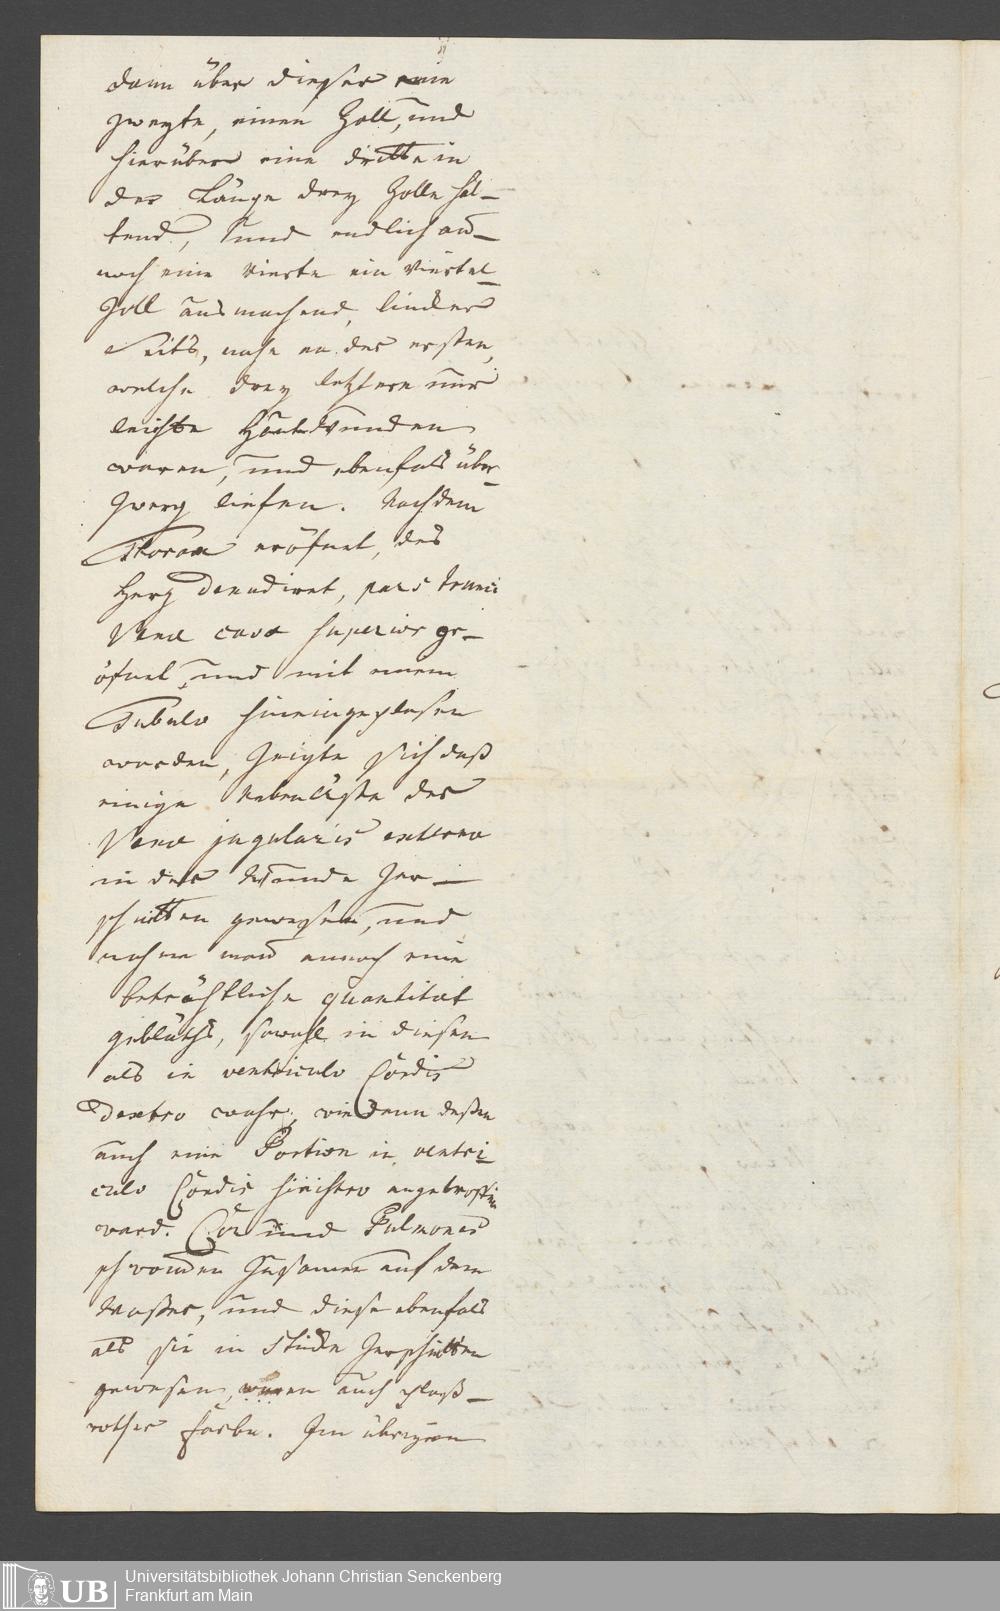 dann über dieser eine
zweyte, einen Zoll, und
hierüber eine dritte in
der Länge drey Zolle hal-
tend, und endlich an-
noch eine vierte ein viertel-
Zoll ausmachend, lincker
Seits, nahe an der ersten,
welche drey letztere nur
leichte Hautwunden
waren, und ebenfals über-
zwerg liefen. Nachdem
Thorax eröfnet, das
Herz denudiret, pars trunci
Venæ cavæ superior ge-
öfnet, und mit einem
Tubulo hineingeplasen
worden, zeigte sich daß
einige Nebenäste der
Venæ jugularis externæ
in der Wunde zer-
schnitten gewesen, und
nahme man annoch eine
beträchtliche quantitæt
geblüths, sowohl in diesen
als in ventriculo Cordis
dextro wahr, wie dann deßen
auch eine Portion in ventri-
culo Cordis sinistro angetroffen
ward. Cor und Pulmones
schwommen zusamen auf dem
Waßer, und diese ebenfals
als sie in Stücke zerschnitten
gewesen, waren auch plaß-
rother Farbe. Im übrigen
UB
Universitätsbibliothek Johann Christian Senckenberg
Frankfurt am Main